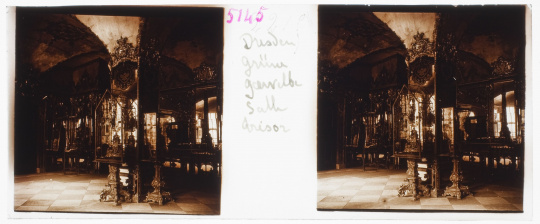 5145
Dresden
Grüne
gewelbe
Salle
trésor